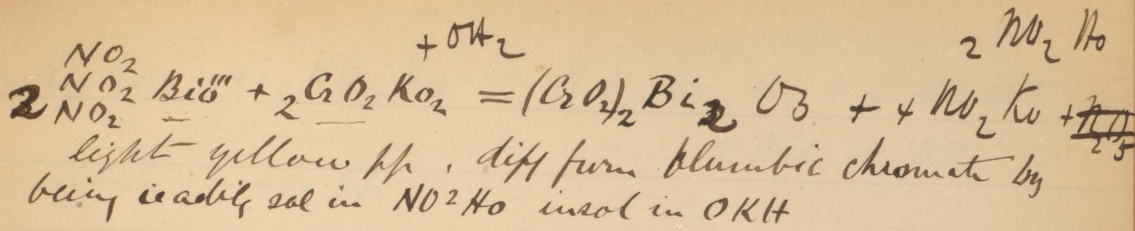 +OH2 2 NO2 Ho
NO2
2 NO2 Bio''' + 2CrO2 Ko2 = (CrO2)2 Bi2 O3 + 4 NO2 Ko + N2O5
NO2
light yellow pp. diff from plumbic chromate by
being readily sol in NO2Ho insol in OKH